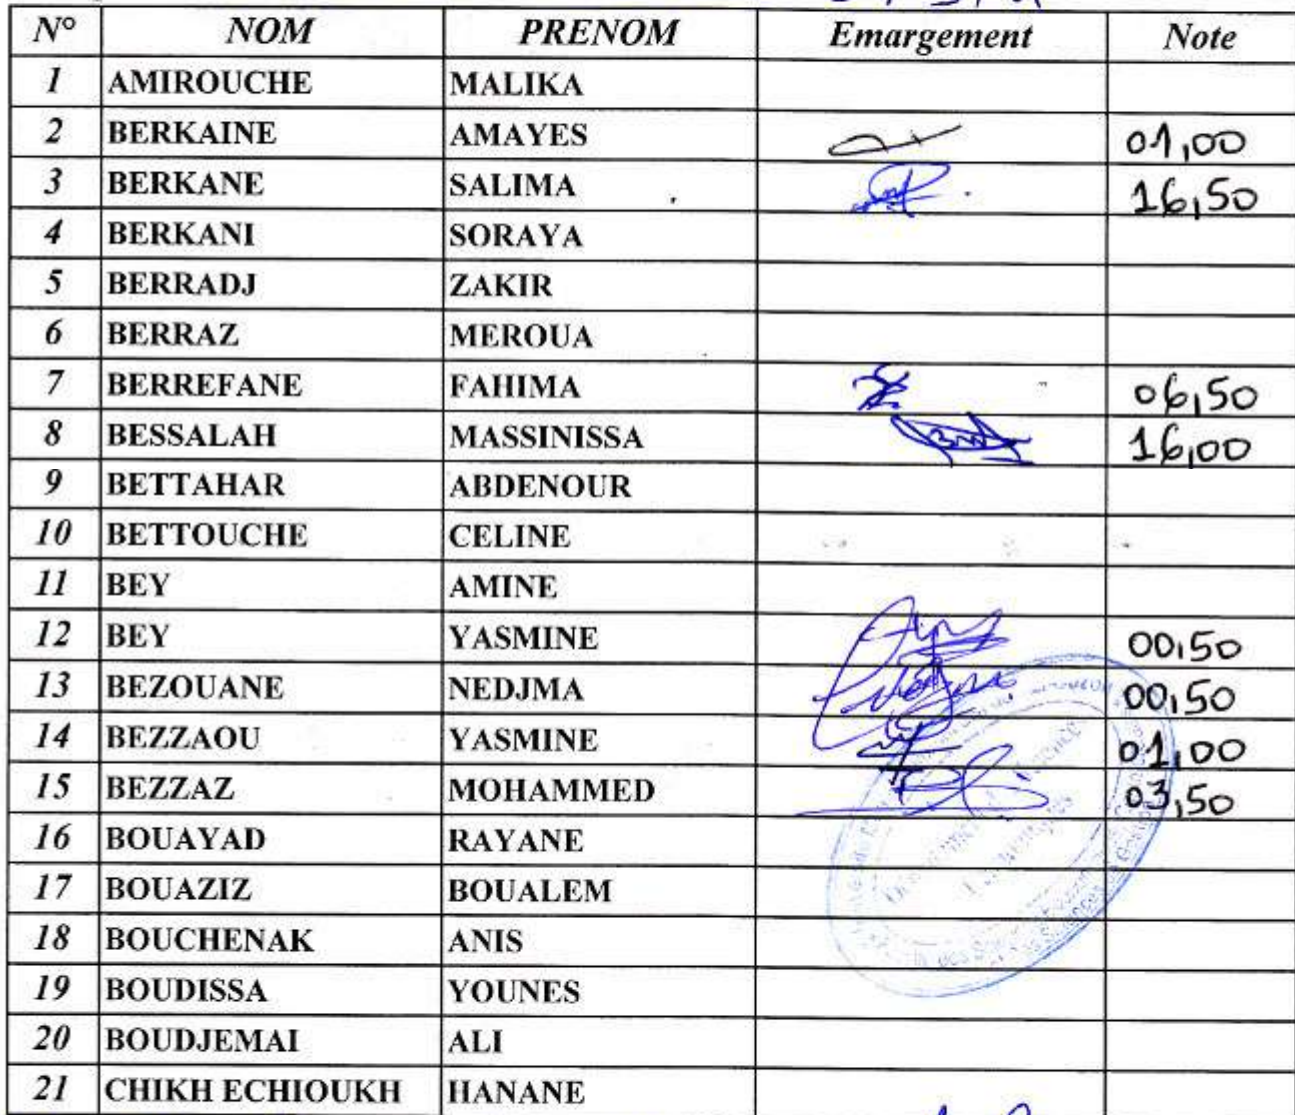 N° NOM PRENOM Emargement Note
1 AMIROUCHE MALIKA
2 BERKAINE AMAYES 01,00
3 BERKANE SALIMA 16,50
4 BERKANI SORAYA
5 BERRADJ ZAKIR
6 BERRAZ MEROUA
7 BERREFANE FAHIMA 06,50
8 BESSALAH MASSINISSA 16,00
9 BETTAHAR ABDENOUR
10 BETTOUCHE CELINE
11 BEY AMINE
12 BEY YASMINE 00,50
13 BEZOUANE NEDJMA 00,50
14 BEZZAOU YASMINE 01,00
15 BEZZAZ MOHAMMED 03,50
16 BOUAYAD RAYANE
17 BOUAZIZ BOUALEM
18 BOUCHENAK ANIS
19 BOUDISSA YOUNES
20 BOUDJEMAI ALI
21 CHIKH ECHIOUKH HANANE